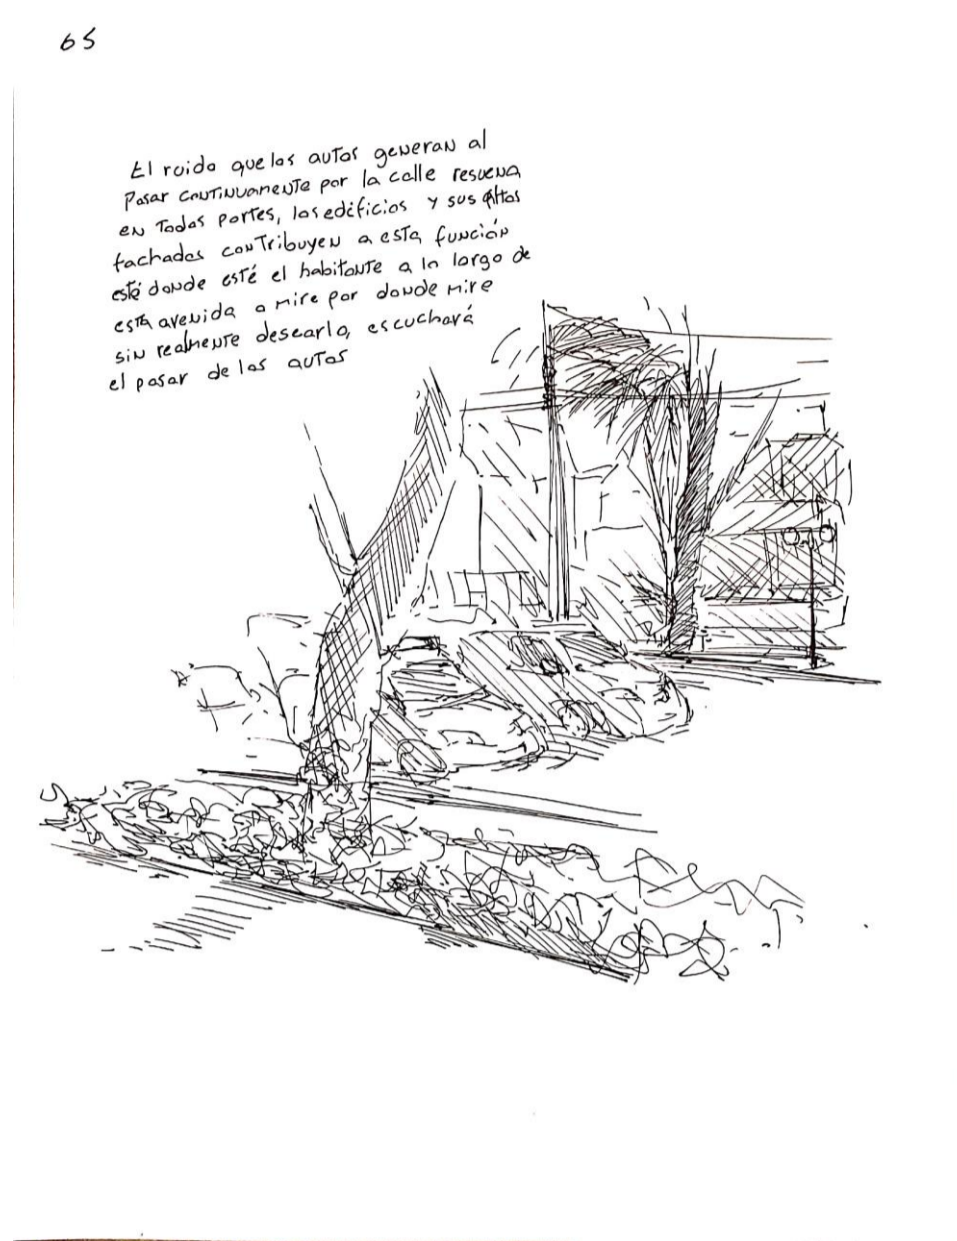 65
El ruido que los autos generan al
pasar continuamente por la calle resuena
en todas partes, los edificios y sus altas
fachadas contribuyen a esta función
esté donde esté el habitante a lo largo de
esta avenida o mire por donde mire
sin realmente desearlo, escuchará
el pasar de los autos